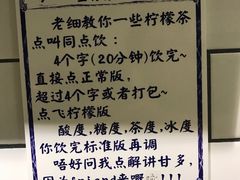 老细教你一些柠檬茶
点叫同点饮：
4个字(20分钟)饮完~
直接点正常版，
超过4个字或者打包~
点飞柠檬版
酸度，糖度，茶度，冰度
你饮完标准版再调
唔好问我点解讲甘多，